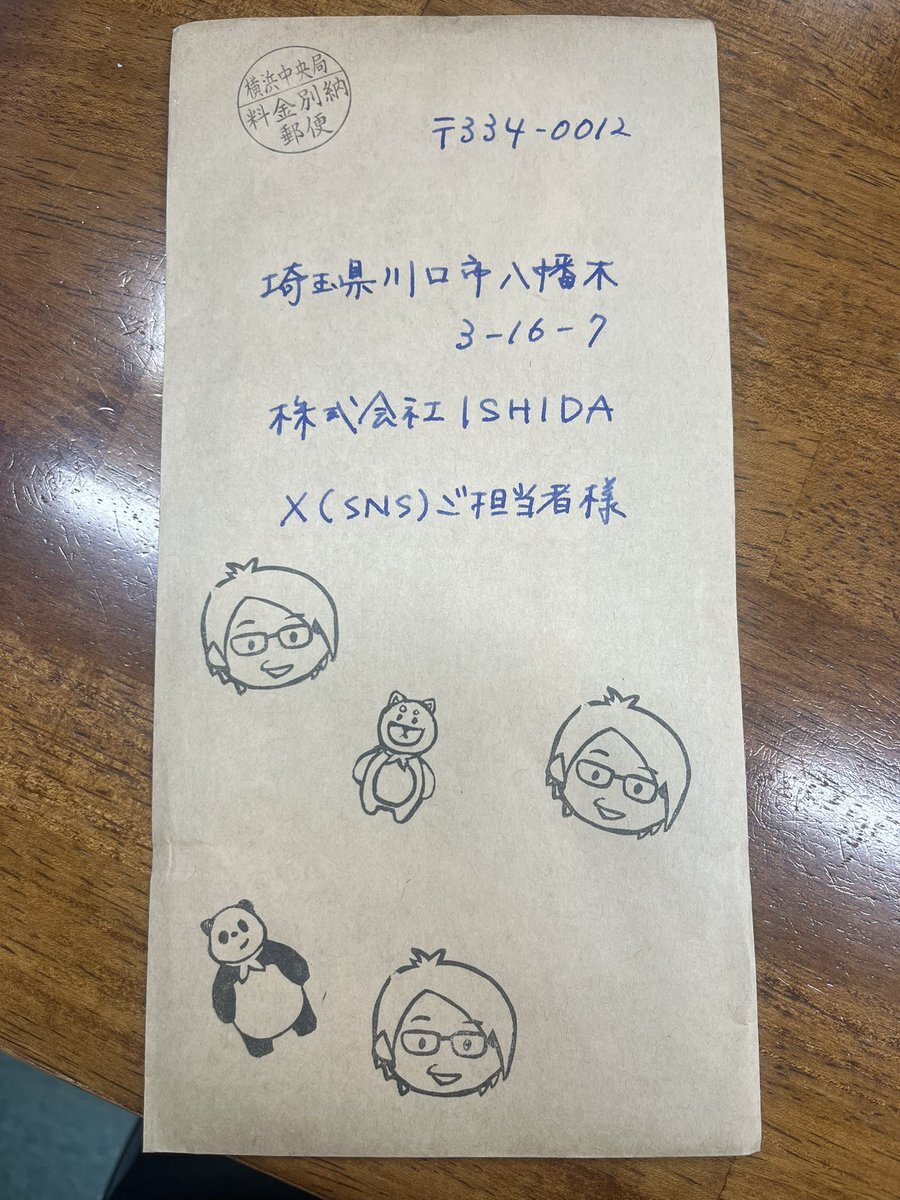 横浜中央局
料金別納
郵便
〒334-0012
埼玉県川口市八幡木
3-16-7
株式会社ISHIDA
X(SNS)ご担当者様